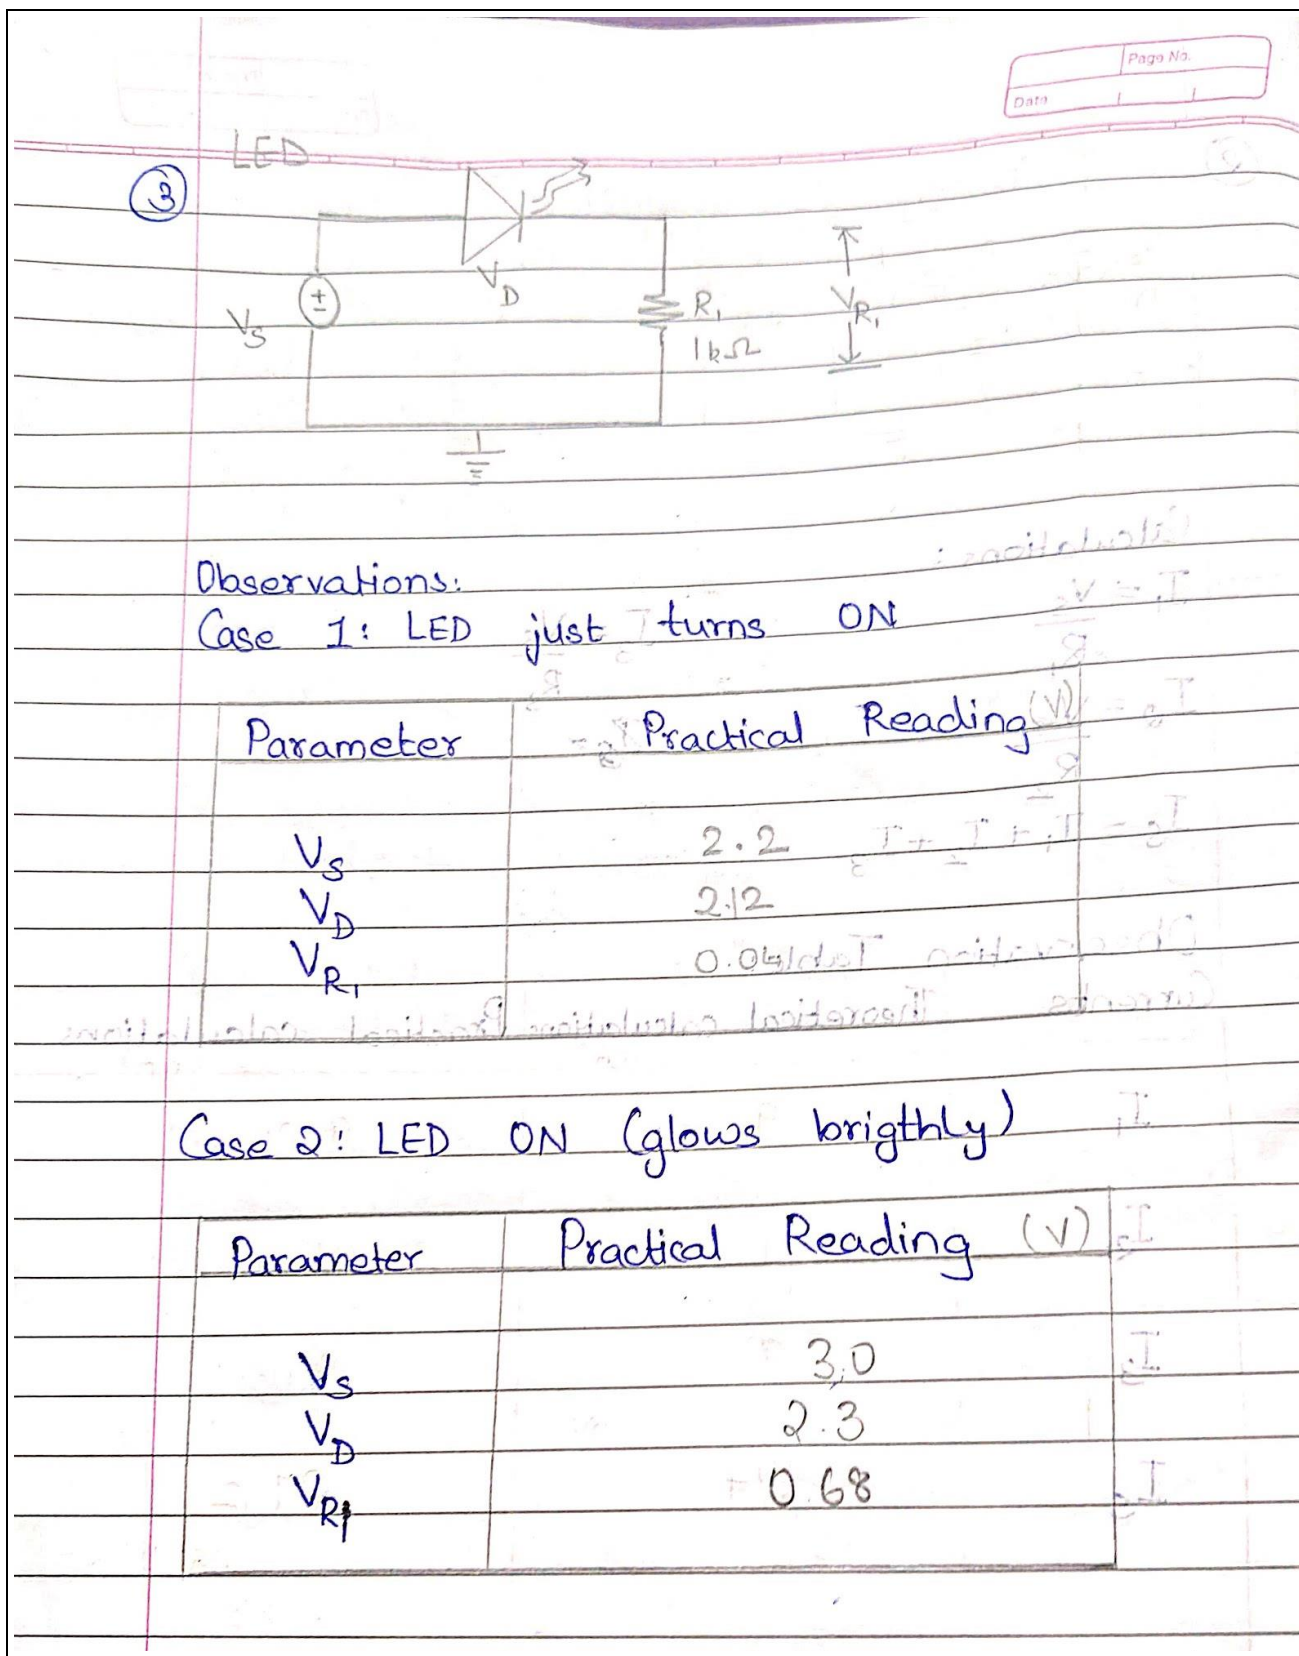 Page No.
Date
LED
3
VD
VS
+
-
R1
1kΩ
VR1
Observations:
Case 1: LED just turns ON
Parameter Practical Reading (V)
VS 2.2
VD 2.12
VR1 0.04
Case 2: LED ON (glows brigthly)
Parameter Practical Reading (V)
VS 3.0
VD 2.3
VR1 0.68